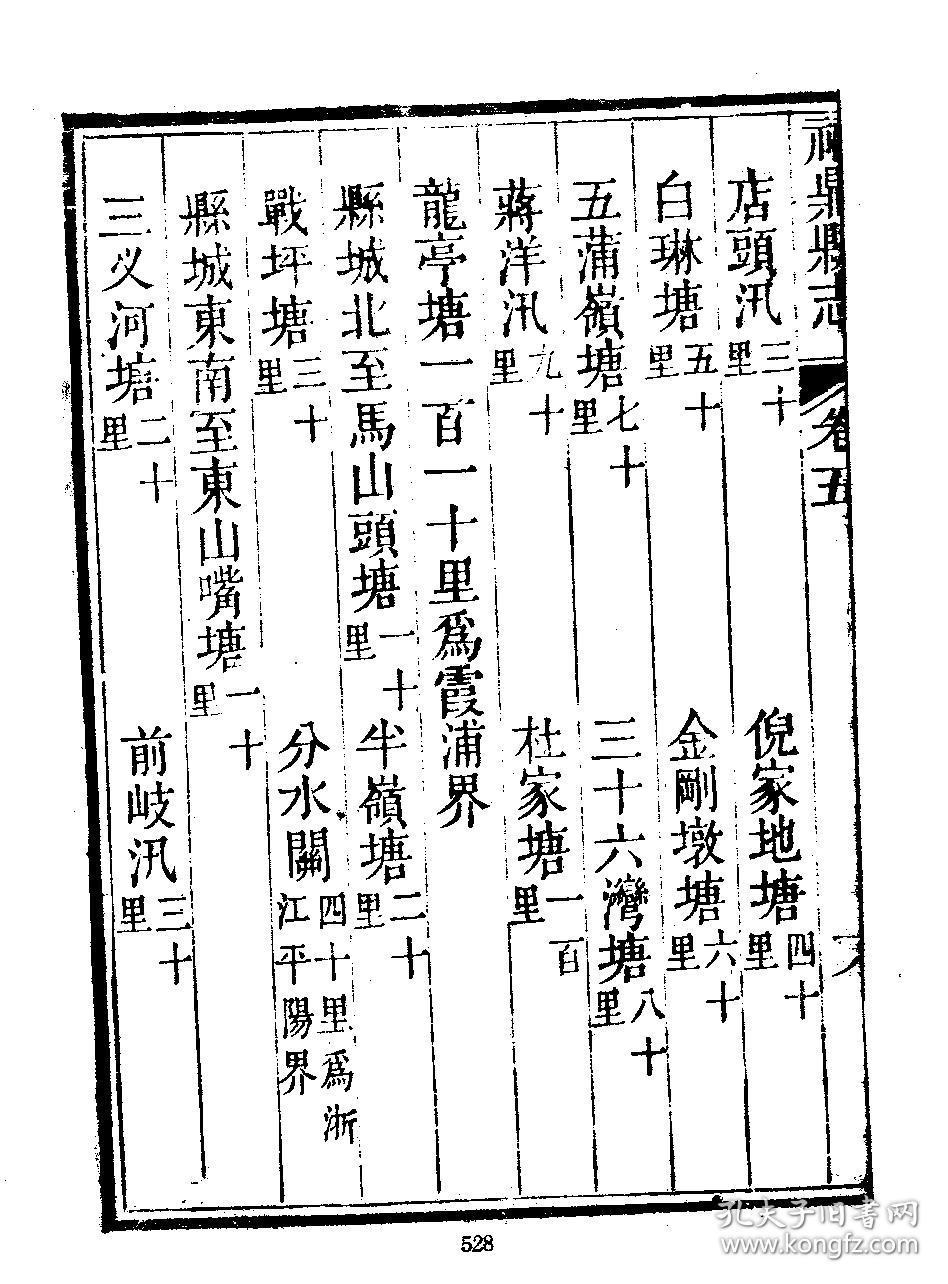 福鼎縣志 卷五 六
店頭汛三十里 倪家地塘四十里
白琳塘五十里 金剛墩塘六十里
五蒲嶺塘七十里 三十六灣塘八十里
蔣洋汛九十里 杜家塘一百里
龍亭塘一百一十里爲霞浦界
縣城北至馬山頭塘一十里 半嶺塘二十里
戰坪塘三十里 分水關四十里爲浙江平陽界
縣城東南至東山嘴塘一十里
三义河塘二十里 前岐汛三十里
528
孔夫子旧书网
www.kongfz.com